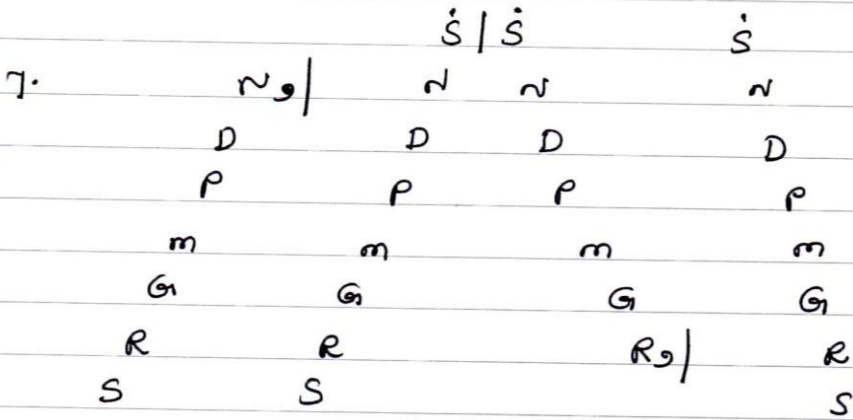 Ṡ | Ṡ Ṡ
7. N, | N N N
D D D D
P P P P
m m m m
G G G G
R R R, | R
S S S